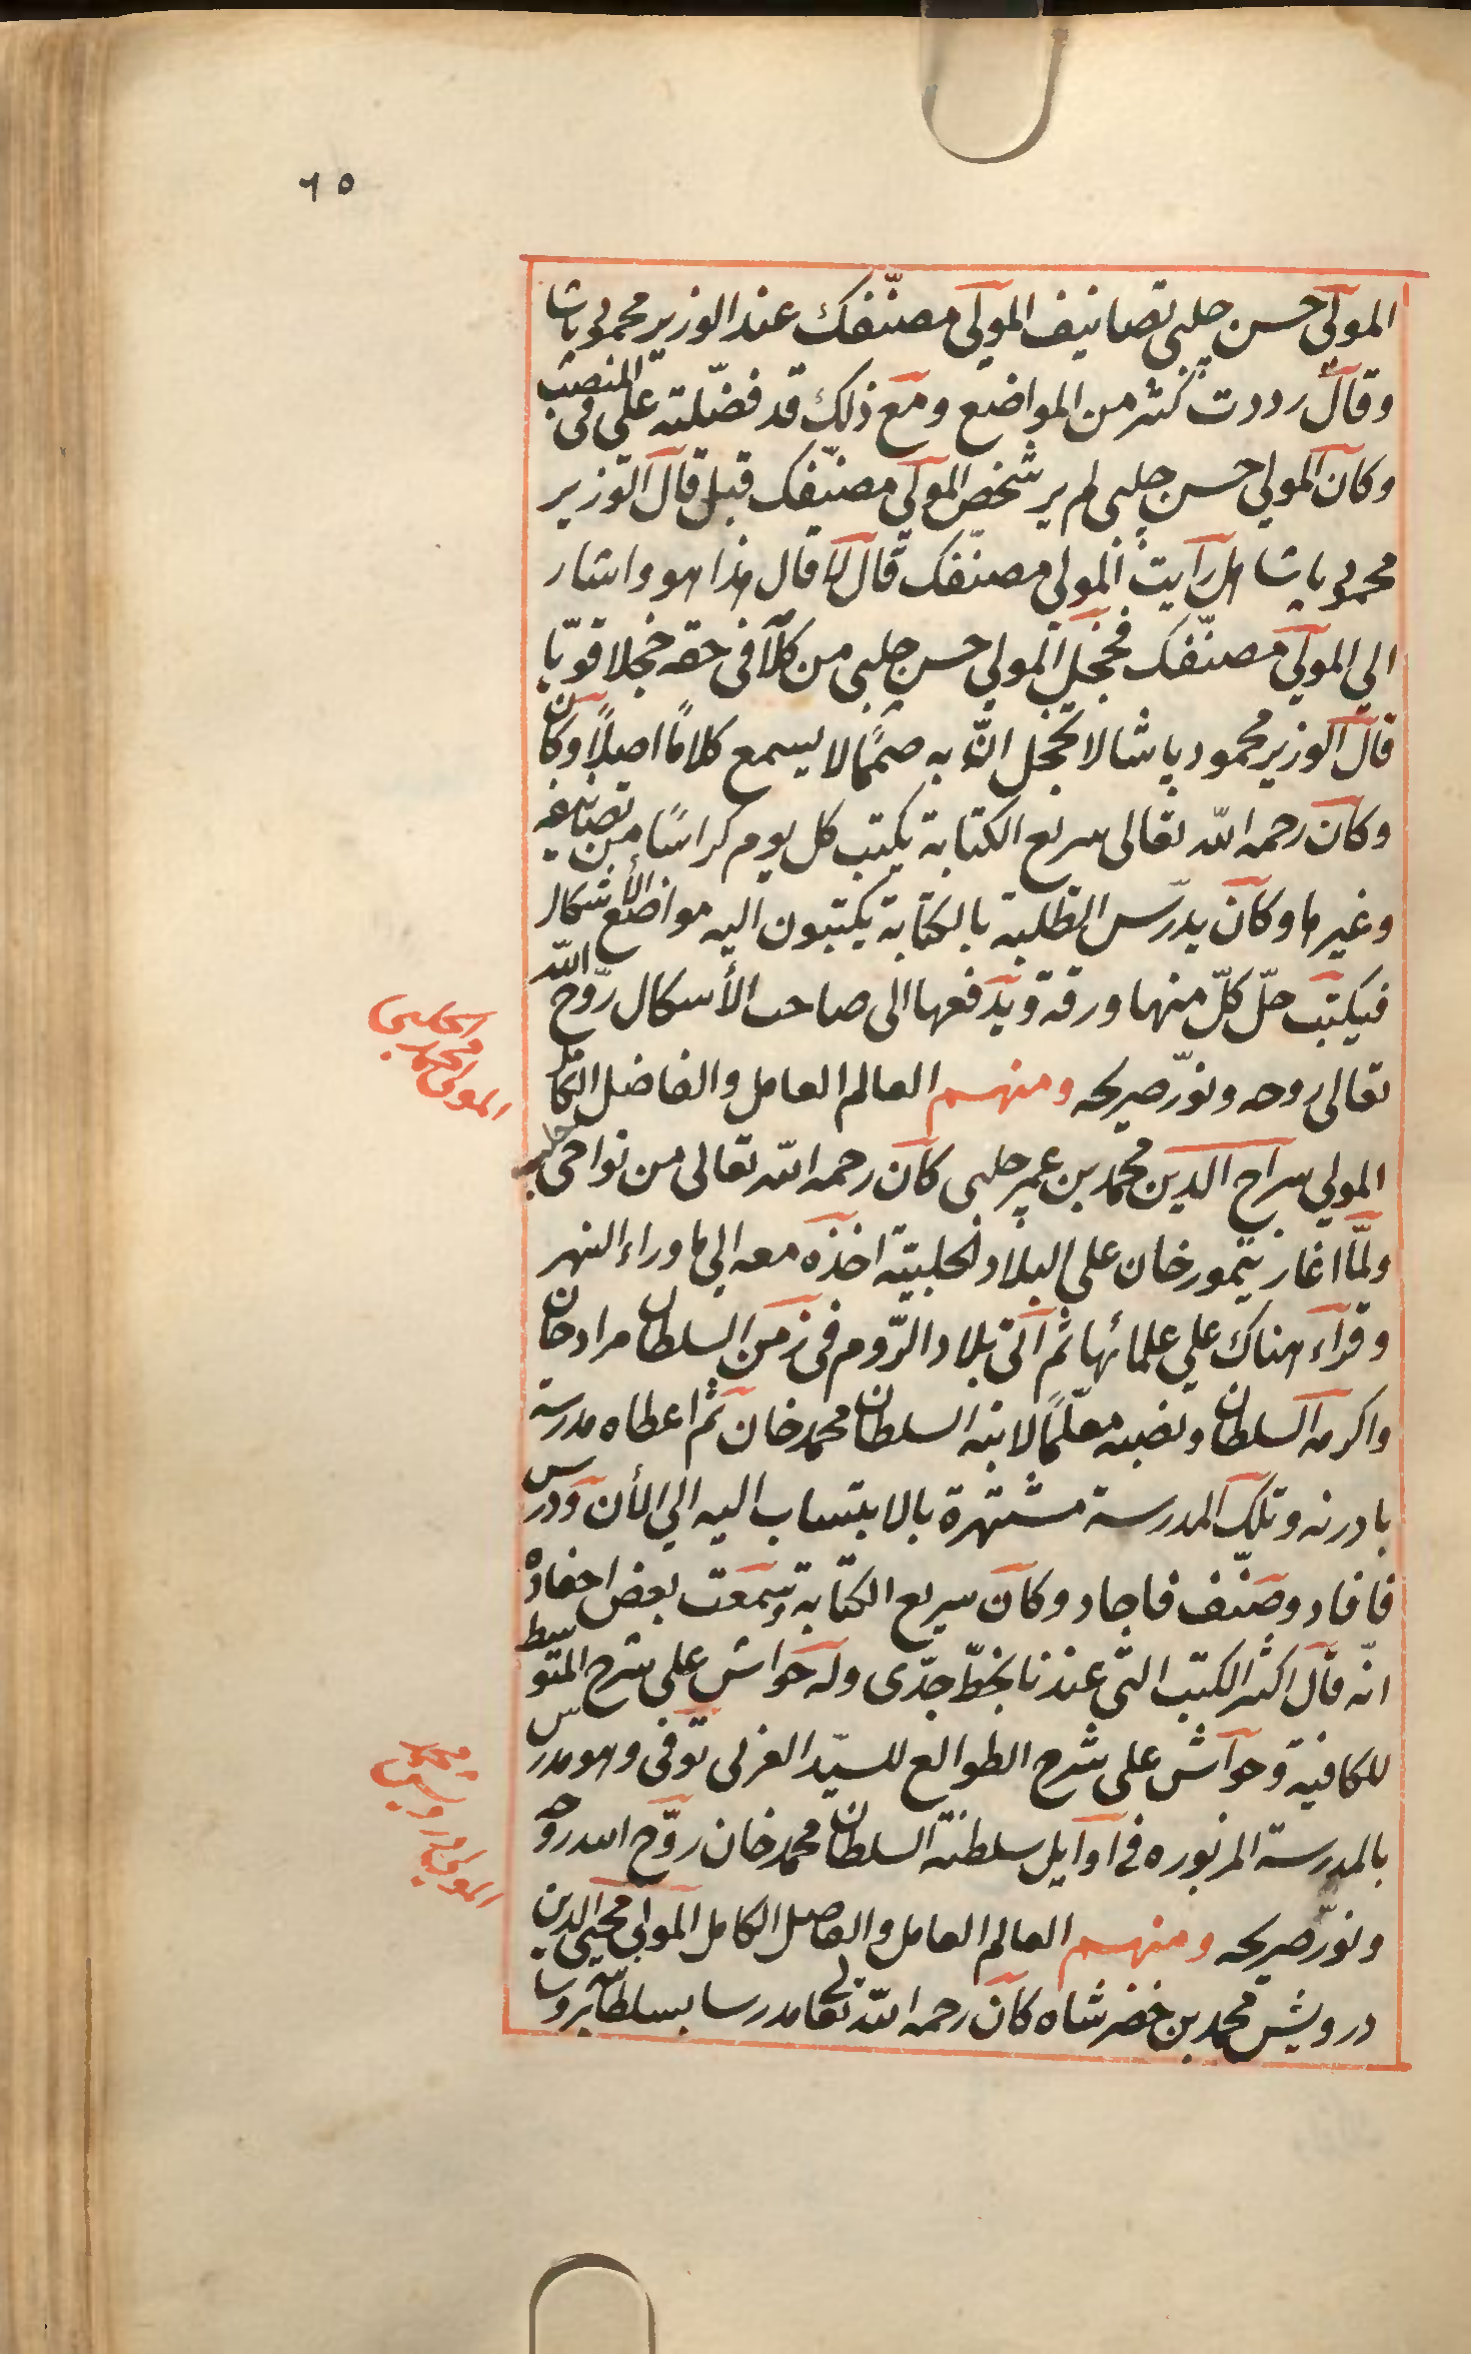 ٦٥
المولى حسن چلبى تصانيف المولى مصنّفك عند الوزير محمود پاشا
وقال رددت كثير من المواضع ومع ذلك قد فضّلته على فى المنصب
وكان المولى حسن چلبى لم ير شخص المولى مصنّفك قبل قال الوزير
محمود پاشا هل رأيت المولى مصنّفك قال لا قال هذا هو واشار
الى المولى مصنّفك فخجل المولى حسن چلبى من كلامه فى حقه خجلا قويّا
قال الوزير محمود پاشا لا تخجل انّ به صممًا لا يسمع كلامًا اصلًا وكان
وكان رحمه الله تعالى سريع الكتابة يكتب كل يوم كراسًا من تصانيفه
وغيرها وكان يدرّس الطلبة بالكتابة يكتبون اليه مواضع الأشكال
فيكتب حلّ كلّ منها ورقة ويدفعها الى صاحب الأسكال روّح الله
تعالى روحه ونوّر ضريحه ومنهم العالم العامل والفاضل الكامل
المولى محمد الحلبى
المولى سراج الدين محمد بن عمر حلبى كان رحمه الله تعالى من نواحى حلب
ولمّا اغار تيمور خان على البلاد الحلبيّة اخذه معه الى ما وراء النهر
وقراء هناك على علمائها ثم اتى بلاد الرّوم فى زمن السلطان مراد خان
واكرمه السلطان ونصبه معلّمًا لابنه السلطان محمد خان ثم اعطاه مدرسة
بادرنه وتلك المدرسة مشتهرة بالانتساب اليه الى الأن ودرس
فافاد وصنّف فاجاد وكان سريع الكتابة وسمعت بعض احفاده
انّه قال اكثر الكتب التى عندنا بخطّ جدّى وله حواش على شرح المتوسط
للكافية وحواش على شرح الطوالع للسيّد العبرى توفى وهو مدرس
بالمدرسة المزبوره فى اوايل سلطنة السلطان محمد خان روّح الله روحه
المولى درويش محمد
ونوّر ضريحه ومنهم العالم العامل والفاصل الكامل المولى محيى الدين
درويش محمد بن خضر شاه كان رحمه الله تعالى مدرسا بسلطانية بروسا